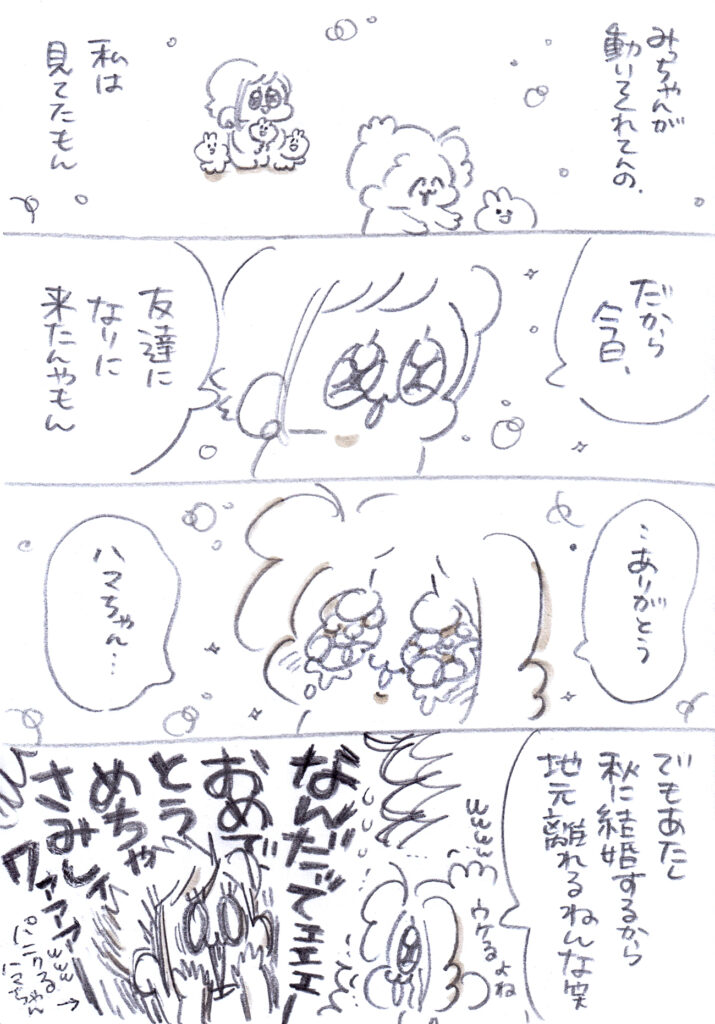 みっちゃんが
動いてくれてんの、
私は
見てたもん
だから
今日、
友達に
なりに
来たんやもん
…ありがとう
ハマちゃん…
でもあたし
秋に結婚するから
地元離れるねんな笑
ウケる
よね
なんだってエエエ
おめで
とう
めちゃ
さみしィ
ワァアアア
パニクる
ハマちゃん